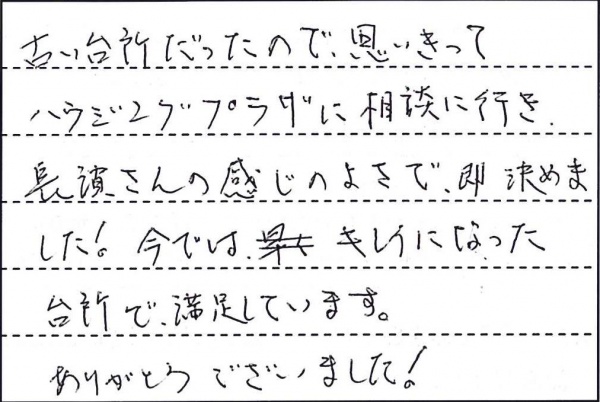 古い台所だったので、思いきって
ハウジングプラザに相談に行き、
長濱さんの感じのよさで、即決めま
した！今では、キレイになった
台所で、満足しています。
ありがとうございました！